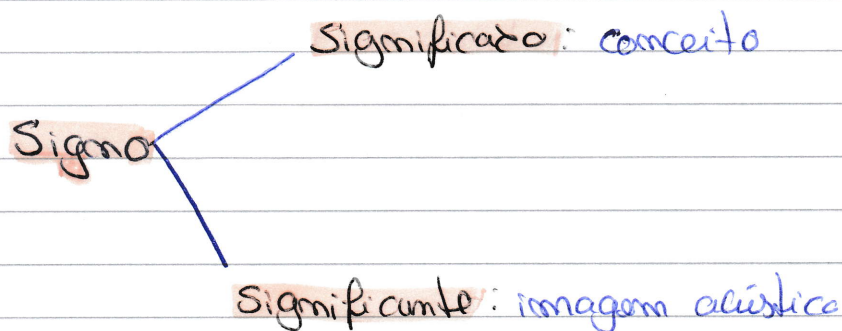 Significado: conceito
Signo
Significante: imagem acústica